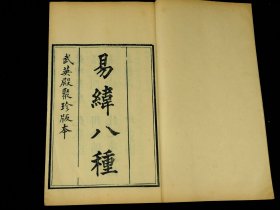 易緯八種
武英殿聚珍版本